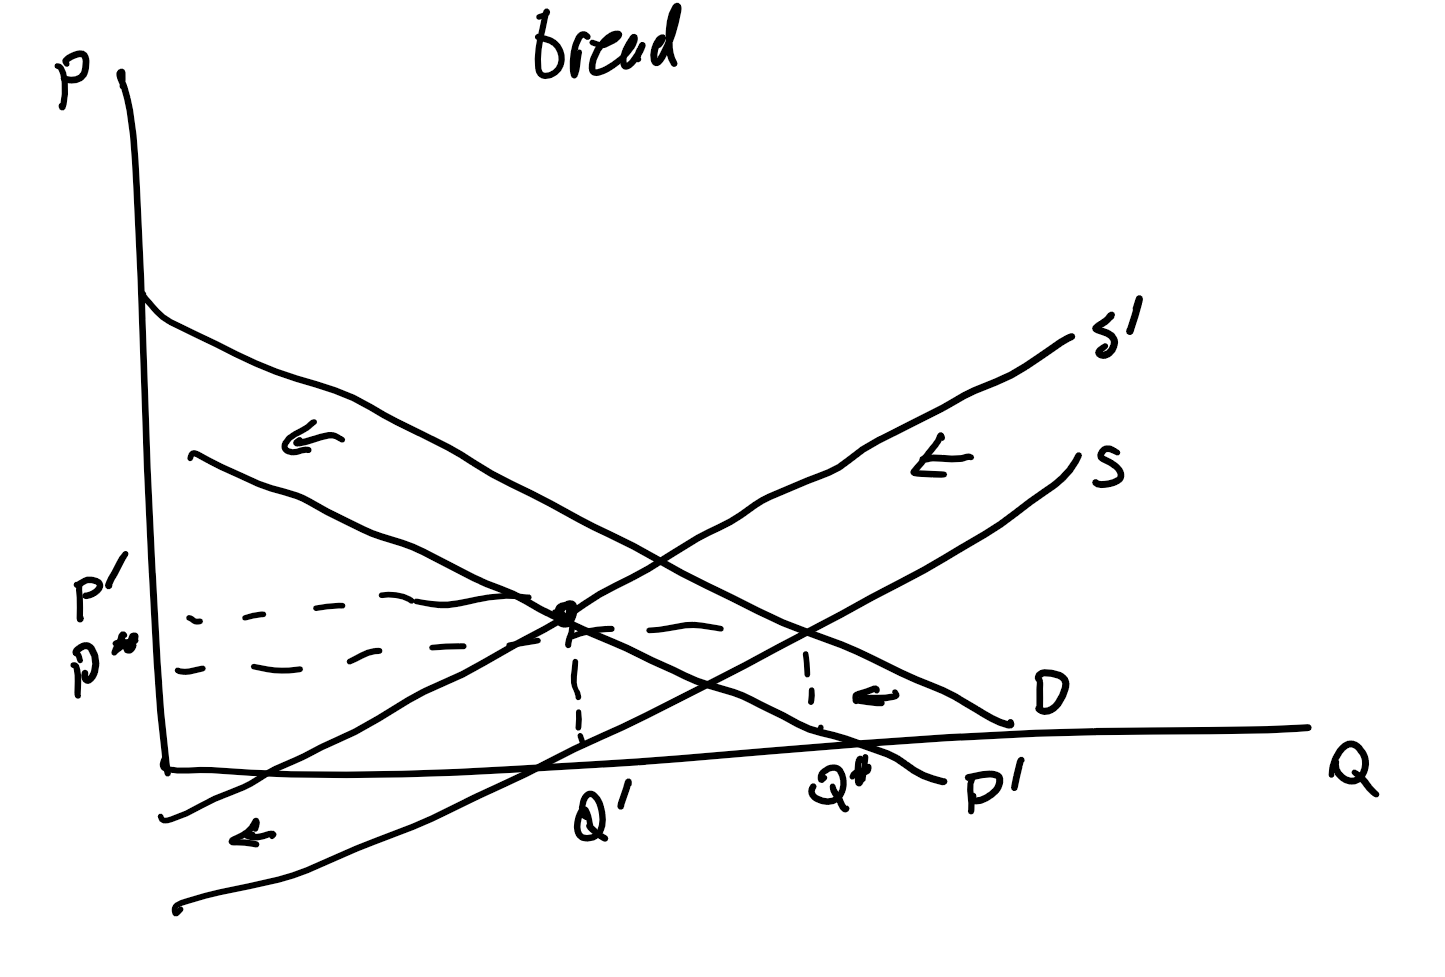 bread
P
S'
S
P'
P*
D
Q'
Q*
D'
Q